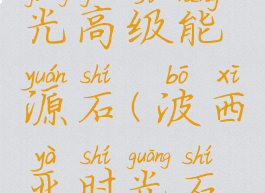 光高级能
yuán shí bō xī
源石(波西
yà shí guāng shí
亚时光石